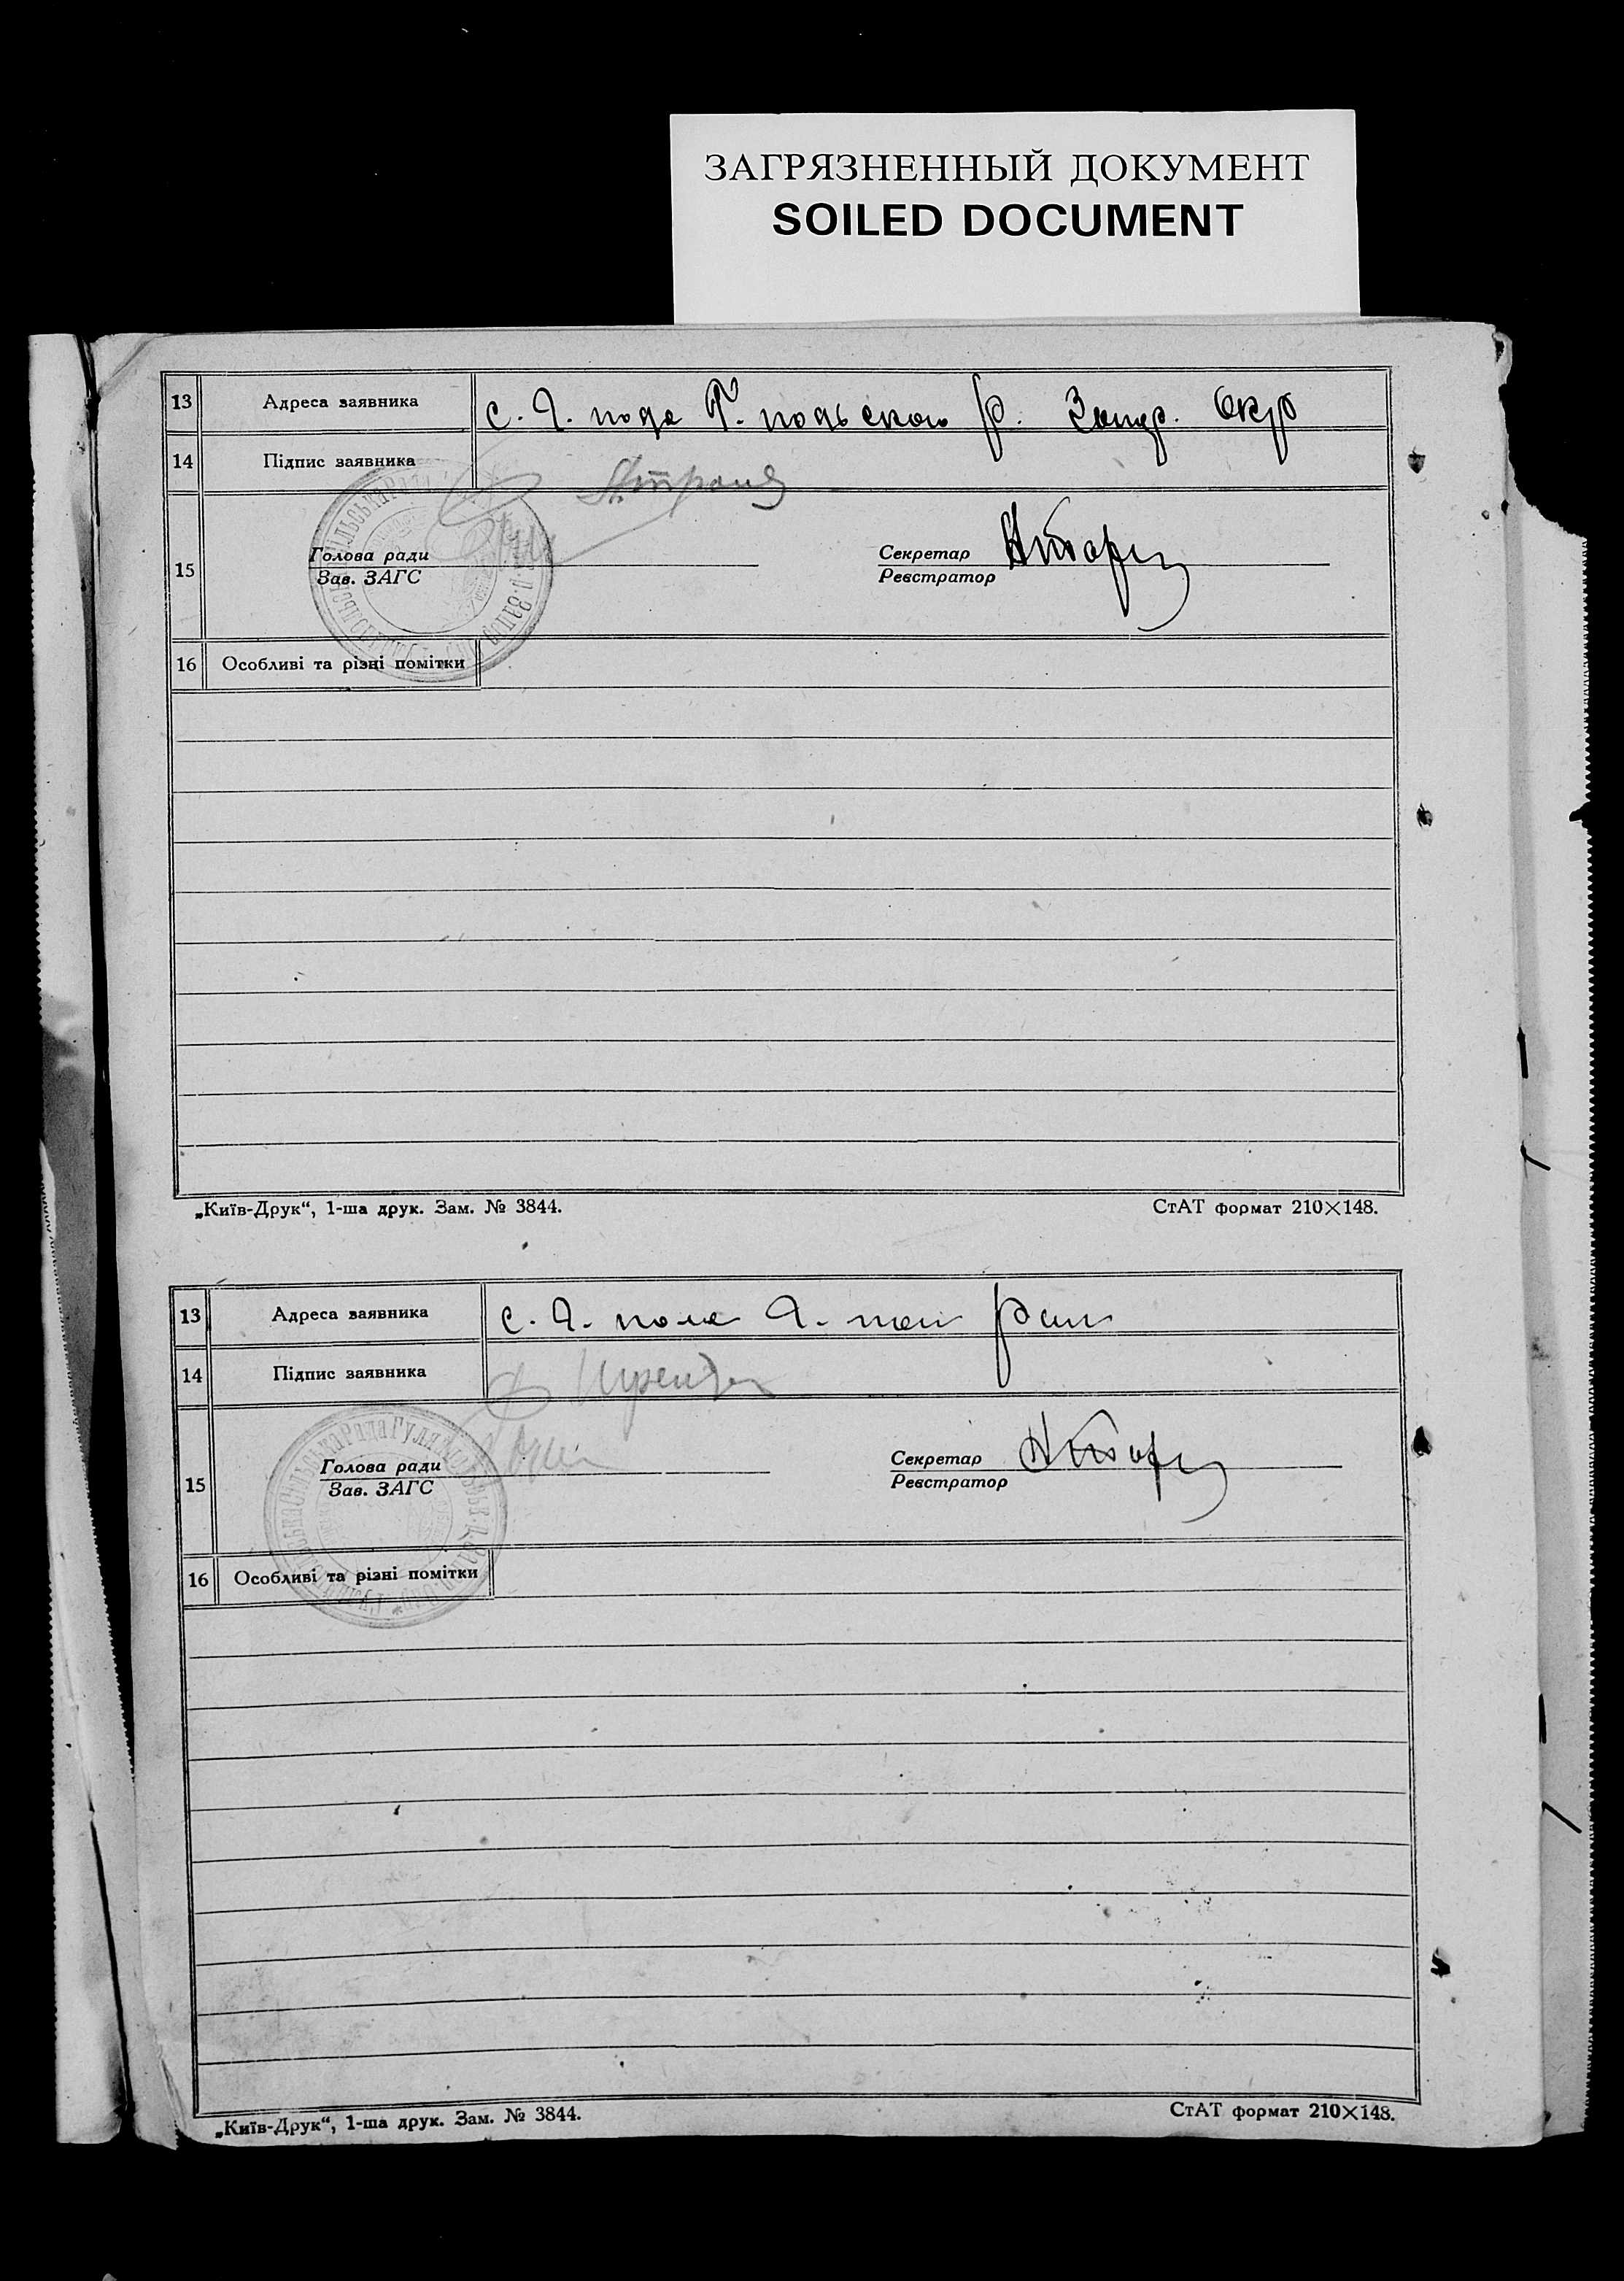 ЗАГРЯЗНЕННЫЙ ДОКУМЕНТ
SOILED DOCUMENT
13 Адреса заявника с. Г. поле Г. польского р. Запор. Окр
14 Підпис заявника
Голова ради Секретар
15
Зав. ЗАГС Реєстратор
16 Особливі та різні помітки
„Київ-Друк“, 1-ша друк. Зам. № 3844. СтАТ формат 210×148.
13 Адреса заявника с. Г. поле Г.
14 Підпис заявника
Голова ради Секретар
15
Зав. ЗАГС Реєстратор
Сільська Рада Гуляйпільськ
16 Особливі та різні помітки
„Київ-Друк“, 1-ша друк. Зам. № 3844. СтАТ формат 210×148.